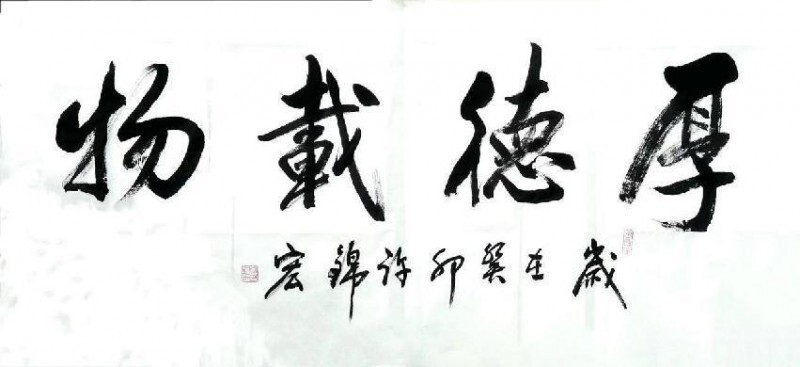 厚德載物
歲在癸卯許錦宏